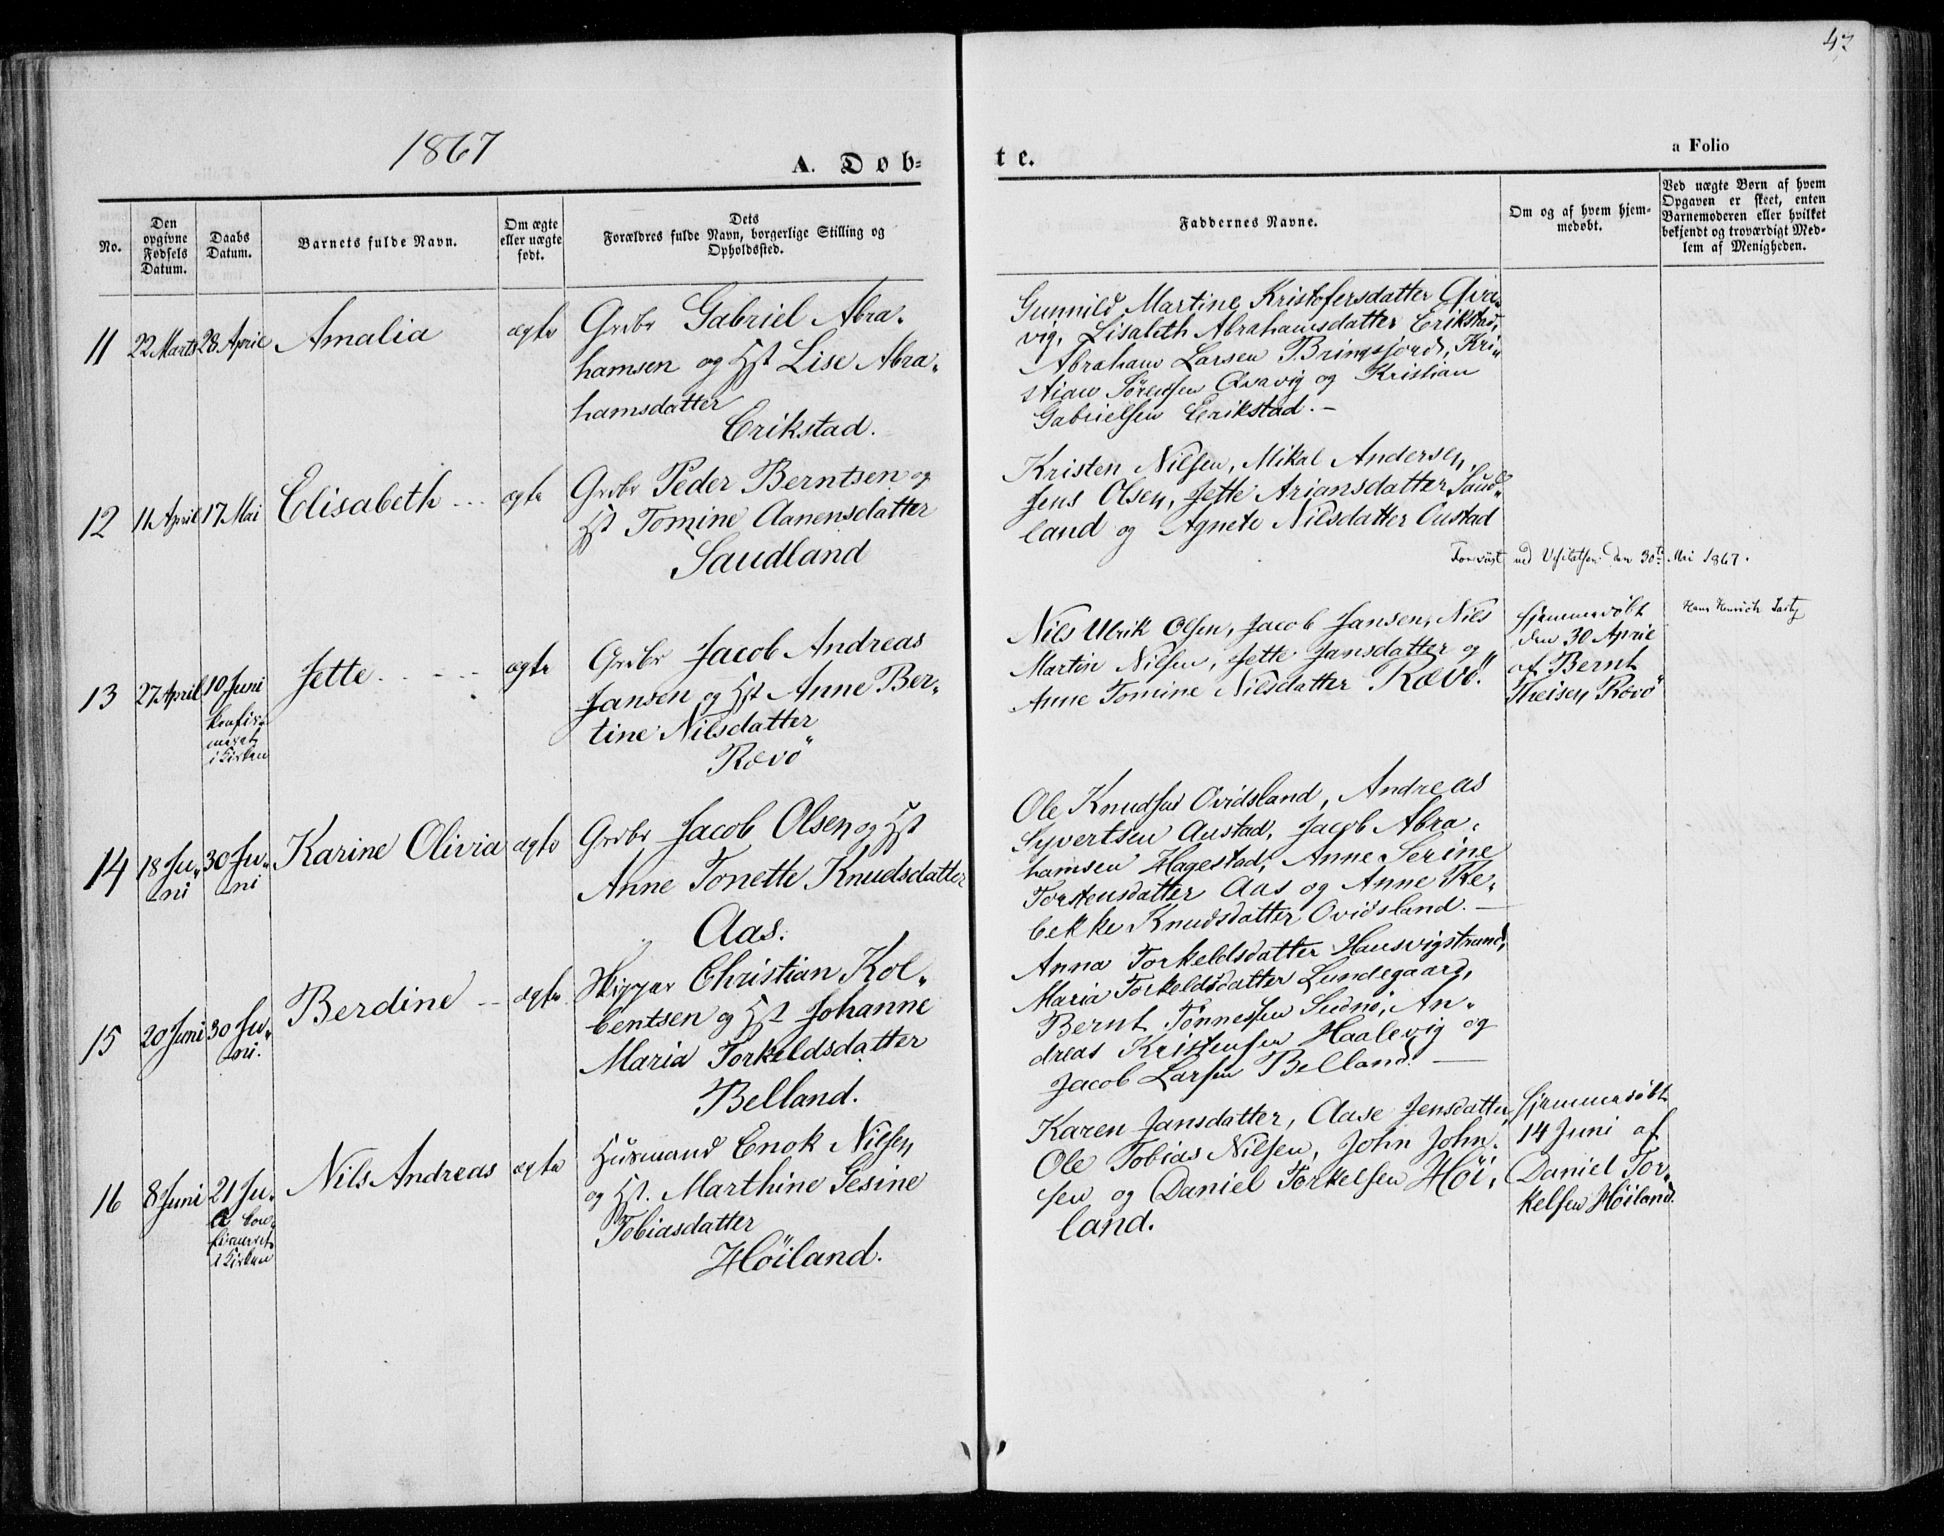 1867
A. Døb-
te.
a Folio
No.
Den
opgivne
Fødsels
Datum.
Daabs
Datum.
Barnets fulde Navn.
Om ægte
eller uægte
født.
Dets
Forældres fulde Navn, borgerlige Stilling og
Opholdssted.
Faddernes Navne.
Om og af hvem hjem-
medøbt.
Ved uægte Børn af hvem
Opgaven er skeet, enten
Barnemoderen eller hvilket
bekjendt og troværdigt Med-
lem af Menigheden.
11 22 Marts 28 April Amalia ægte
Grdbr Gabriel Abra-
hamsen og Hst Lise Abra-
hamsdatter
Erikstad.
Gunnild Martine Kristofersdatter Qva-
vig, Lisabeth Abrahamsdatter Erikstad,
Abraham Larsen Bringsjord, Kri-
stian Sørensen Qvavig og Kristian
Gabrielsen Erikstad. –
12 11 April 17 Mai Elisabeth ægte
Grdbr Peder Berntsen og
Hst Tomine Aanensdatter
Saudland
Kristen Nilsen, Mikal Andersen,
Jens Olsen, Jette Ariansdatter Saud-
land og Agnete Nilsdatter Oustad
Forevist ved Visitatsen den 30te Mai 1867.
13 27 April 10 Juni
konfir-
meret
i Kirken
Jette ægte
Grdbr Jacob Andreas
Jansen og Hst Anne Ber-
tine Nilsdatter
Rævø
Nils Ulrik Olsen, Jacob Jansen, Nils
Martin Nilsen, Jette Jansdatter og
Anne Tomine Nilsdatter Rævø.
Hjemmedøbt
den 30 April
af Bernt
Theisen Rævø
14 18 Ju-
ni
30 Ju-
ni
Karine Olivia ægte
Grdbr Jacob Olsen og Hst
Anne Tonette Knudsdatter
Aas.
Ole Knudsen Ovidsland, Andreas
Syvertsen Austad, Jacob Abra-
hamsen Hagestad, Anne Serine
Torstensdatter Aas og Anne Re-
bekke Knudsdatter Ovidsland. –
15 20 Juni 30 Ju-
ni.
Berdine ægte
Skipper Christian Kol-
bentsen og Hst Johanne
Maria Torkeldsdatter
Belland.
Anna Torkeldsdatter Hausvigstrand,
Maria Torkeldsdatter Lundegaard,
Bernt Tønnesen Sudnø, An-
dreas Kristensen Haalevig og
Jacob Larsen Belland. –
16 8 Juni 21 Ju-
li Con-
firmeret
i Kirken
Nils Andreas ægte
Husmand Enok Nilsen
og Hst. Marthine Gesine
Tobiasdatter
Høiland.
Karen Jansdatter, Aase Jensdatter
Ole Tobias Nilsen, John John-
sen og Daniel Torkelsen Høi-
land.
Hjemmedøbt
14 Juni af
Daniel Tor-
kelsen Høiland.